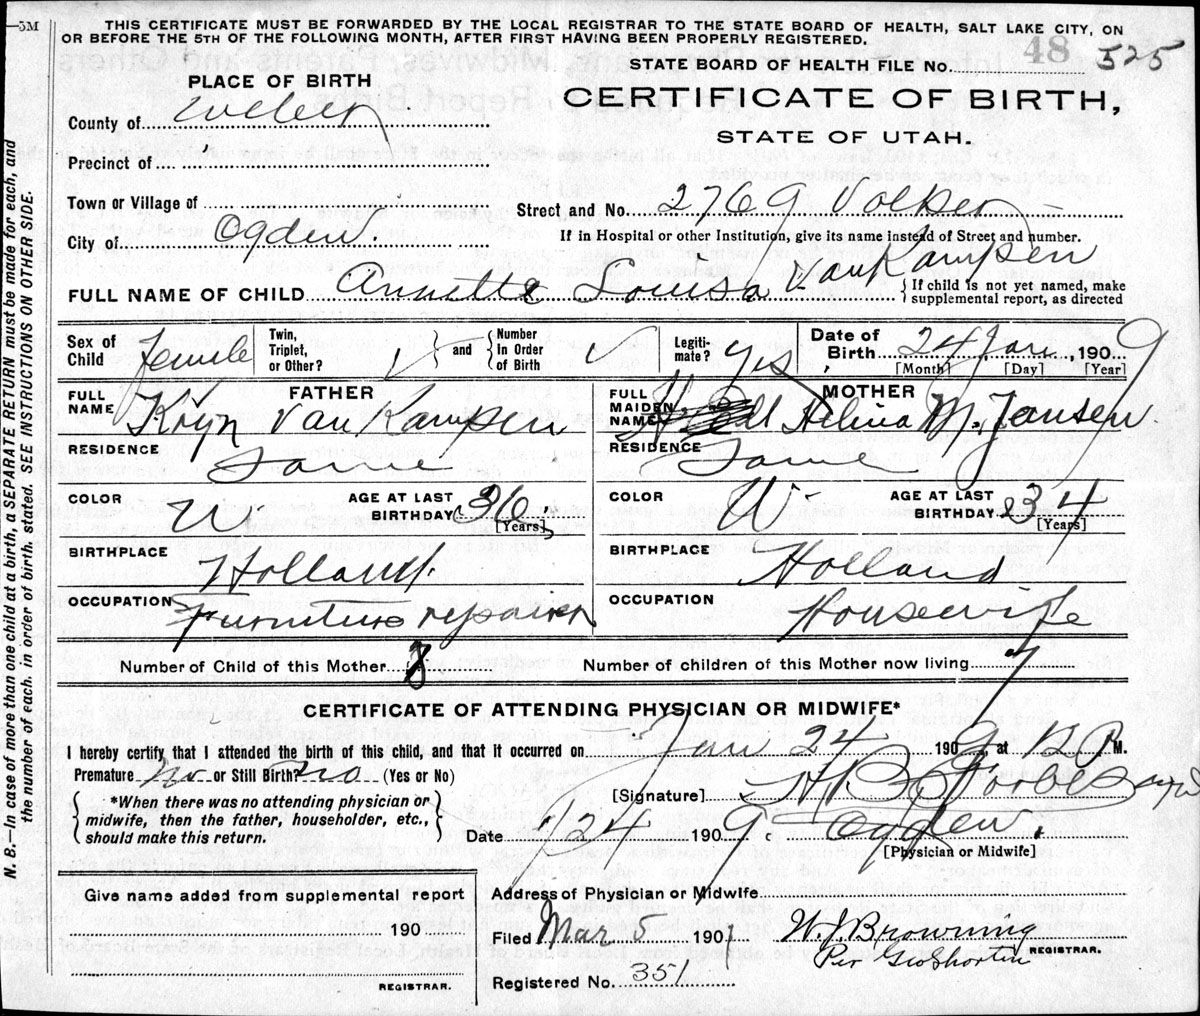 5M
THIS CERTIFICATE MUST BE FORWARDED BY THE LOCAL REGISTRAR TO THE STATE BOARD OF HEALTH, SALT LAKE CITY, ON
OR BEFORE THE 5TH OF THE FOLLOWING MONTH, AFTER FIRST HAVING BEEN PROPERLY REGISTERED.
48 525
STATE BOARD OF HEALTH FILE No.
PLACE OF BIRTH
CERTIFICATE OF BIRTH,
STATE OF UTAH.
County of Weber
Precinct of
Town or Village of
Street and No. 2769 Volker
City of Ogden.
If in Hospital or other Institution, give its name instead of Street and number.
FULL NAME OF CHILD Annette Louisa VanKampen
{If child is not yet named, make
supplemental report, as directed
Sex of Child Female
Twin, Triplet, or Other?
and
Number In Order of Birth
Legiti-mate? yes
Date of Birth 24 Jan, 1909
[Month] [Day] [Year]
FATHER
FULL NAME Kryn Van Kampen
MOTHER
FULL MAIDEN NAME Helina M. Jansen.
RESIDENCE Same
RESIDENCE Same
COLOR W.
AGE AT LAST BIRTHDAY 36
[Years]
COLOR W
AGE AT LAST BIRTHDAY 34
[Years]
BIRTHPLACE Holland.
BIRTHPLACE Holland
OCCUPATION Furniture repairer
OCCUPATION Housewife
Number of Child of this Mother 8
Number of children of this Mother now living 7
CERTIFICATE OF ATTENDING PHYSICIAN OR MIDWIFE*
I hereby certify that I attended the birth of this child, and that it occurred on Jan 24 1909, at 12 P M.
Premature no or Still Birth? no (Yes or No)
[Signature] H B Forbes
*When there was no attending physician or
midwife, then the father, householder, etc.,
should make this return.
Date 1/24 1909 Ogden.
[Physician or Midwife]
Give name added from supplemental report
190
REGISTRAR.
Address of Physician or Midwife
Filed Mar 5 1909 W. J. Browning
REGISTRAR.
Per
Registered No. 351
N. B.—In case of more than one child at a birth, a SEPARATE RETURN must be made for each, and
the number of each, in order of birth, stated. SEE INSTRUCTIONS ON OTHER SIDE.